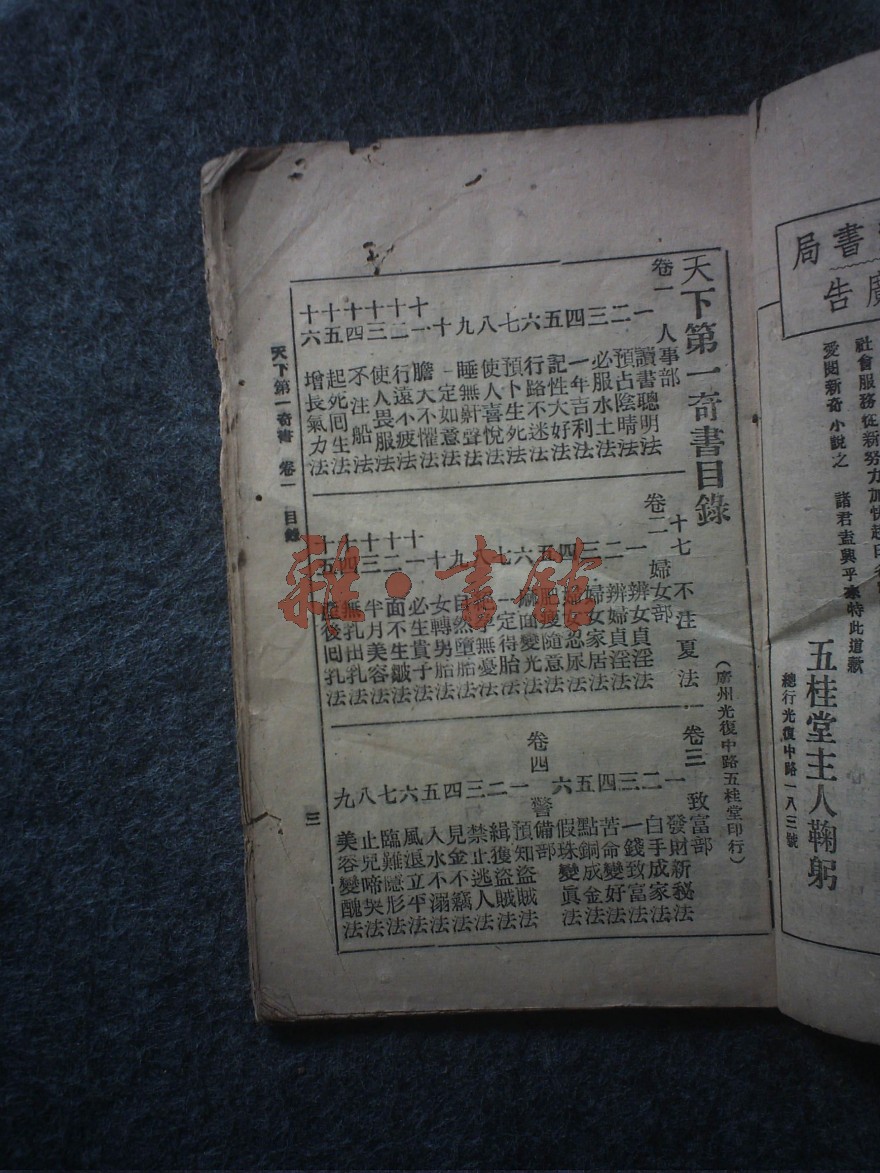 書局
廣告
社會服務在新努力加快起
愛閱新奇小說之 諸君盍興乎來特此道歉
五桂堂主人鞠躬
總行光復中路一八三號
天下第一奇書目錄
(廣州光復中路五桂堂印行)
卷一 人事部
一 讀書聰明法
二 預占陰晴法
三 必服水土法
四 一年吉利法
五 記性大好法
六 行路不迷法
七 預卜生死法
八 使人喜悅法
九 睡無鼾聲法
十 一定如意法
十一 膽大不懼法
十二 行遠不疲法
十三 使人畏服法
十四 不注船法
十五 起死囘生法
十六 增長氣力法
十七 不注夏法
卷二 婦女部
一 辨女貞淫法
二 辨婦貞淫法
三 婦女家居法
四 婦女忍尿法
五 肥瘦隨意法
六 麻面變光法
七 一定得胎法
八 無憂法
九 自然墮胎法
十 女轉男胎法
十一 必生貴子法
十二 面不生皺法
十三 半月美容法
十四 無乳出乳法
十五 後囘乳法
卷三 致富部
一 發財新秘法
二 白手成家法
三 一錢致富法
四 苦命變好法
五 點銅成金法
六 假珠變眞法
卷四 警備部
一 預知盜賊法
二 緝獲盜賊法
三 禁止逃人法
四 見金不竊法
五 入水不溺法
六 風浪立平法
七 臨難隱形法
八 止兒啼哭法
九 美容變醜法
天下第一奇書 卷一 目錄
三
雜·書館